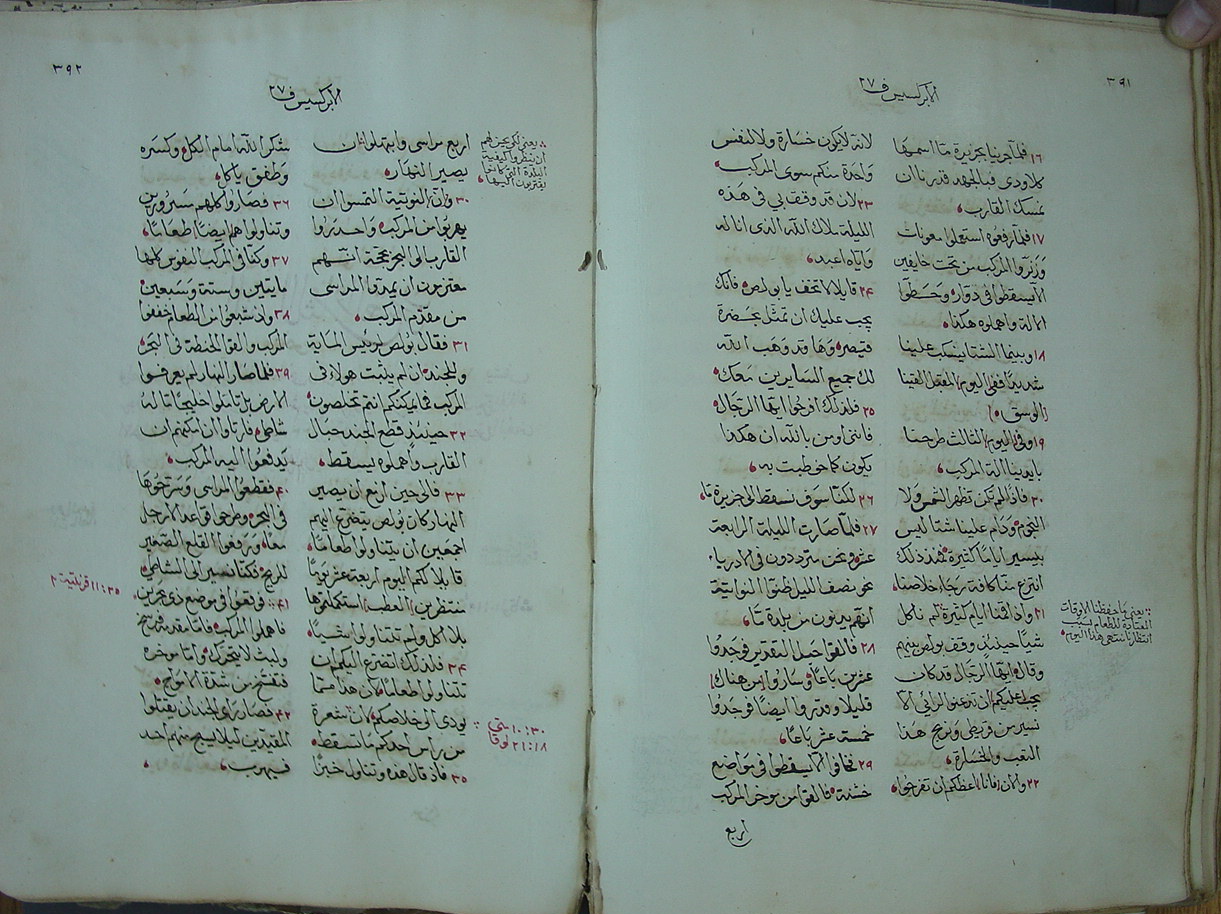 ٣٩١
الابركسيس ف ٢٧
١٦ فلما جرينا بجزيرة ما اسمها
كلاودى فبالجهد قدرنا ان
نمسك القارب
١٧ فلما رفعوه استعملوا معونات
وزنروا المركب من تحت خايفين
الا يسقطوا فى دوارة وحطوا
الالة واهملوه هكذا
١٨ وبينما الشتا ينسكب علينا
شديدًا ففى اليوم المقبل القينا
الوسق
١٩ وفى اليوم الثالث طرحنا
بايدينا الة المركب
٢٠ فاذ لم تكن تظهر الشمس ولا
النجوم ودام علينا شتا ليس
بيسير ايامًا كثيرة فمنذ ذلك
انتزع منا كافة رجا خلاصنا
٢١ واذ اقمنا ايام كثيرة لم ناكل
شيًا حينيذٍ وقف بولص بينهم
وقال ايها الرجال قد كان
يجب عليكم ان تذعنوا لرائي الا
نسير من قريطى ونربح هذا
التعب والخسارة
٢٢ والان فانا اعظكم ان تفرحوا
يعنى ما حفظنا الاوقات
العتادية للطعام بسبب
انتظارنا منتهى هذا اليوم
لانه لا يكون خسارة ولا لنفس
واحدة منكم سوى المركب
٢٣ لان قد وقف بى فى هذه
الليلة ملاك الله الذى انا له
واياه اعبد
٢٤ قايلا لا تخف يا بولص فانك
يجب عليك ان تمثل بحضرة
قيصر وها قد وهب الله
لك جميع السايرين معك
٢٥ فلذلك افرحوا ايها الرجال
فاننى اومن بالله ان هكذا
يكون كما خوطبت به
٢٦ لكنا سوف نسقط الى جزيرة ما
٢٧ فلما صارت الليلة الرابعة
عشر ونحن مترددون فى الادرياء
نحو نصف الليل ظنوا النواتية
انهم يدنون من بلدة ما
٢٨ فالقوا حبل التقدير فوجدوا
عشرين باعًا وساروا من هناك
قليلا وقدروا ايضًا فوجدوا
خمسة عشر باعًا
٢٩ فخافوا الا يسقطوا فى مواضع
خشنة فالقوا من موخر المركب
اربع
٣٩٢
الابركسيس ف ٢٧
اربع مراسى وابتهلوا ان
يصير النهار
٣٠ وان النوتية التمسوا ان
يهربوا من المركب واحدروا
القارب الى البحر بحجة انهم
معتزمون ان يمدوا المراسى
من مقدم المركب
٣١ فقال بولص لرئيس الماية
وللجند ان لم يثبت هولاء فى
المركب فما يمكنكم انتم تخلصون
٣٢ حينيذٍ قطع الجند حبال
القارب واهملوه يسقط
٣٣ فالى حين ازمع ان يصير
النهار كان بولص يتضرع اليهم
اجمعين ان يتناولوا طعامًا
قايلا لكم اليوم اربعة عشر يومًا
منتظرين العطب استكملتموها
بلا اكل ولم تتناولوا شيًا
٣٤ فلذلك اتضرع اليكم ان
تتناولوا طعامًا لان هذا مما
يودى الى خلاصكم لان شعرة
من راس احدكم ما تسقط
٣٥ فاذ قال هذه وتناول خبزًا
يعنى لكى عين لهم
ان ينظروا كيفية
البلدة التى كانوا
يقتربون اليها
١٠:٣٠ متى
٢١:١٨ لوقا
شكر الله امام الكل وكسره
وطفق ياكل
٣٦ فصاروا كلهم مسرورين
وتناولوا هم ايضًا طعامًا
٣٧ وكنا فى المركب النفوس كلها
مايتين وستة وسبعين
٣٨ واذ شبعوا من الطعام خففوا
المركب والقوا الحنطة فى البحر
٣٩ فلما صار النهار لم يعرفوا
الارض بل تاملوا خليجًا ما له
شاطى فارتاوا ان امكنهم ان
يدفعوا اليه المركب
٤٠ فقطعوا المراسى وسرحوها
فى البحر وطرحوا قواعد الارجل
معًا ورفعوا القلع الصغير
للريح فكنا نسير الى الشاطى
٤١ فوقعوا فى موضع ذى بحرين
فاهملوا المركب فاما مقدمه فرسخ
ولبث لا يتحرك واما موخره
فتفسخ من شدة الامواج
٤٢ فصار راى الجند ان يقتلوا
المقيدين ليلا يسبح منهم احد
فيهرب